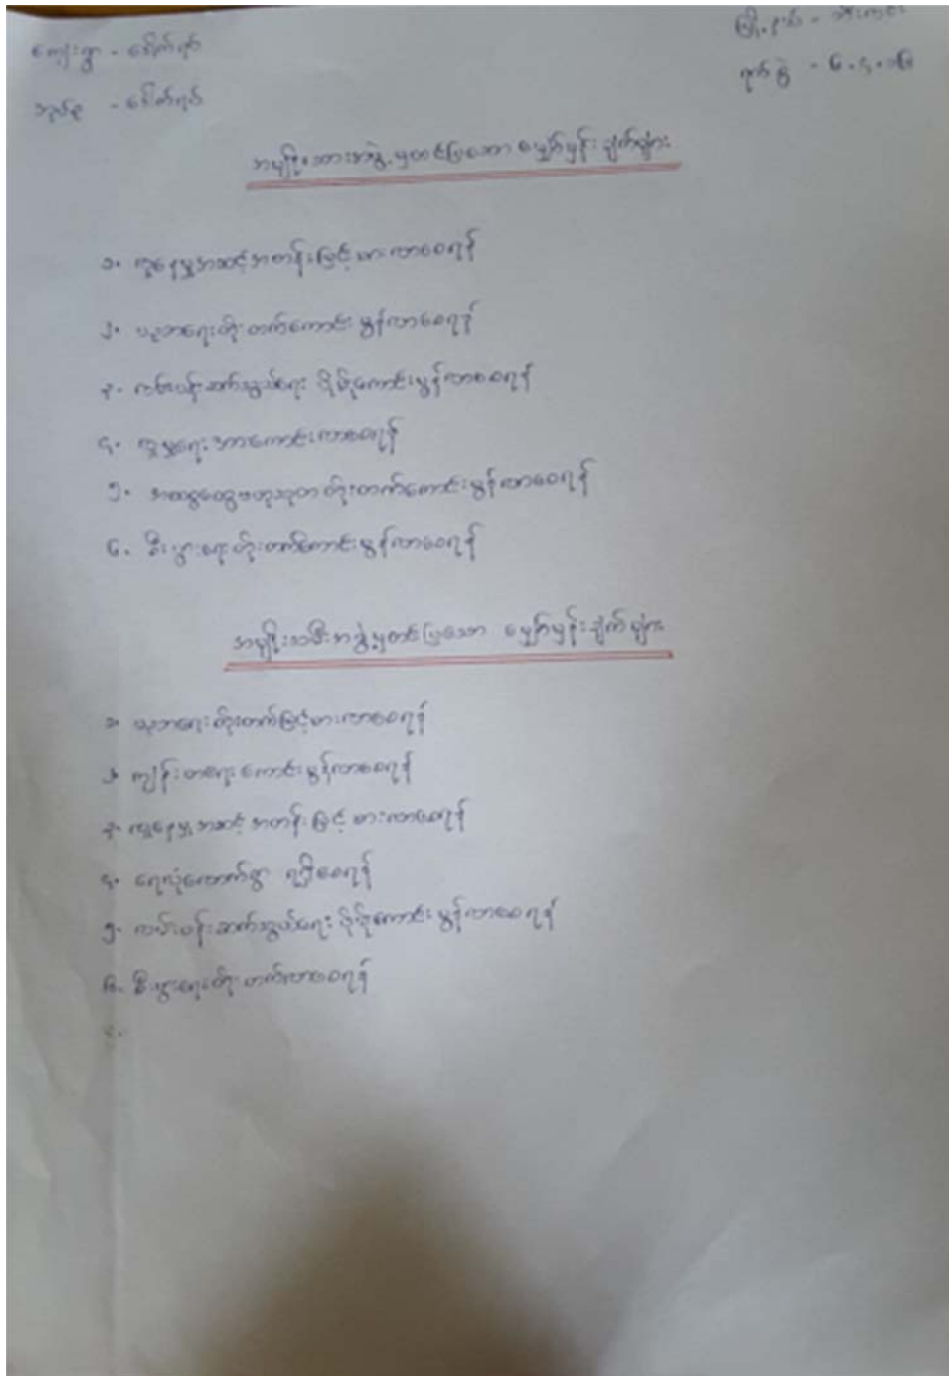 ကျေးရွာ - ဒေါက်ရပ်
မြို့နယ် -
အုပ်စု - ဒေါက်ရပ်
ရက်စွဲ - ၆.၄.၁၆
အမျိုးသားအဖွဲ့မှတင်ပြသော မျှော်မှန်းချက်များ
၁. လူနေမှုအဆင့်အတန်းမြင့်မားလာစေရန်
၂. ပညာရေးတိုးတက်ကောင်းမွန်လာစေရန်
၃. လမ်းပန်းဆက်သွယ်ရေး ပိုမိုကောင်းမွန်လာစေရန်
၄. လူမှုရေးအားကောင်းလာစေရန်
၅. အထွေထွေဗဟုသုတ တိုးတက်ကောင်းမွန်လာစေရန်
၆. စီးပွားရေးတိုးတက်ကောင်းမွန်လာစေရန်
အမျိုးသမီးအဖွဲ့မှတင်ပြသော မျှော်မှန်းချက်များ
၁. ပညာရေးတိုးတက်မြင့်မားလာစေရန်
၂. ကျန်းမာရေးကောင်းမွန်လာစေရန်
၃. လူနေမှုအဆင့်အတန်းမြင့်မားလာစေရန်
၄. ရေလုံလောက်စွာ ရရှိစေရန်
၅. လမ်းပန်းဆက်သွယ်ရေး ပိုမိုကောင်းမွန်လာစေရန်
၆. စီးပွားရေးတိုးတက်လာစေရန်